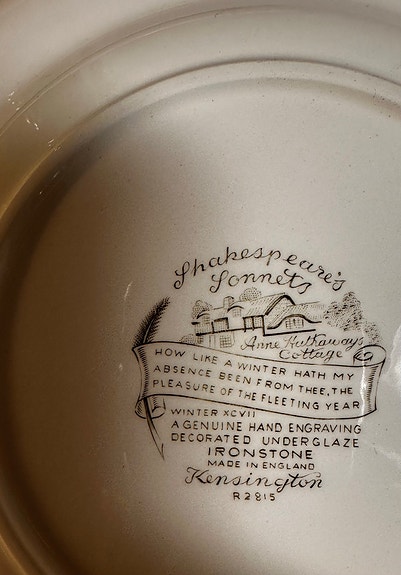 Shakespeare's
Sonnets
Anne Hathaways
Cottage
HOW LIKE A WINTER HATH MY
ABSENCE BEEN FROM THEE, THE
PLEASURE OF THE FLEETING YEAR
WINTER XCVII
A GENUINE HAND ENGRAVING
DECORATED UNDERGLAZE
IRONSTONE
MADE IN ENGLAND
Kensington
R2815